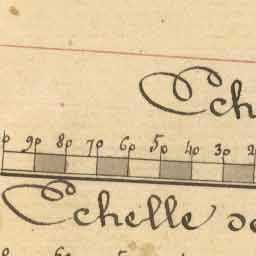 Ech
90 80 70 60 50 40 30
Echelle de